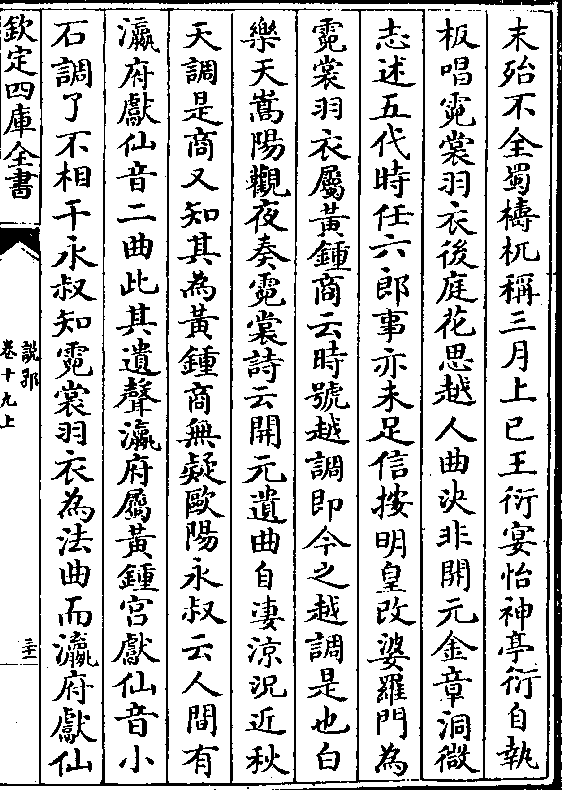 末殆不全蜀檮杌稱三月上巳王衍宴怡神亭衍自執
板唱霓裳羽衣後庭花思越人曲決非開元金章洞微
志述五代時任六郎事亦未足信按明皇改婆羅門為
霓裳羽衣屬黃鍾商云時號越調即今之越調是也白
樂天嵩陽觀夜奏霓裳詩云開元遺曲自凄涼況近秋
天調是商又知其為黃鍾商無疑歐陽永叔云人間有
瀛府獻仙音二曲此其遺聲瀛府屬黃鍾宮獻仙音小
石調了不相干永叔知霓裳羽衣為法曲而瀛府獻仙
欽定四庫全書
說郛
卷十九上
三十二